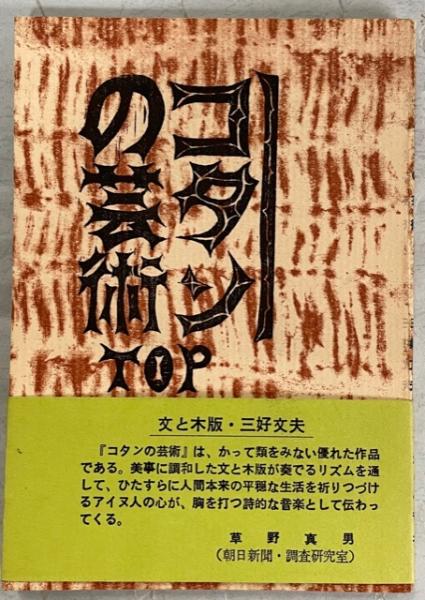 コタン
の芸術
TOP
文と木版・三好文夫
『コタンの芸術』は、かって類をみない優れた作品
である。美事に調和した文と木版が奏でるリズムを通
して、ひたすらに人間本来の平穏な生活を祈りつづけ
るアイヌ人の心が、胸を打つ詩的な音楽として伝わっ
てくる。
草野真男
(朝日新聞・調査研究室)